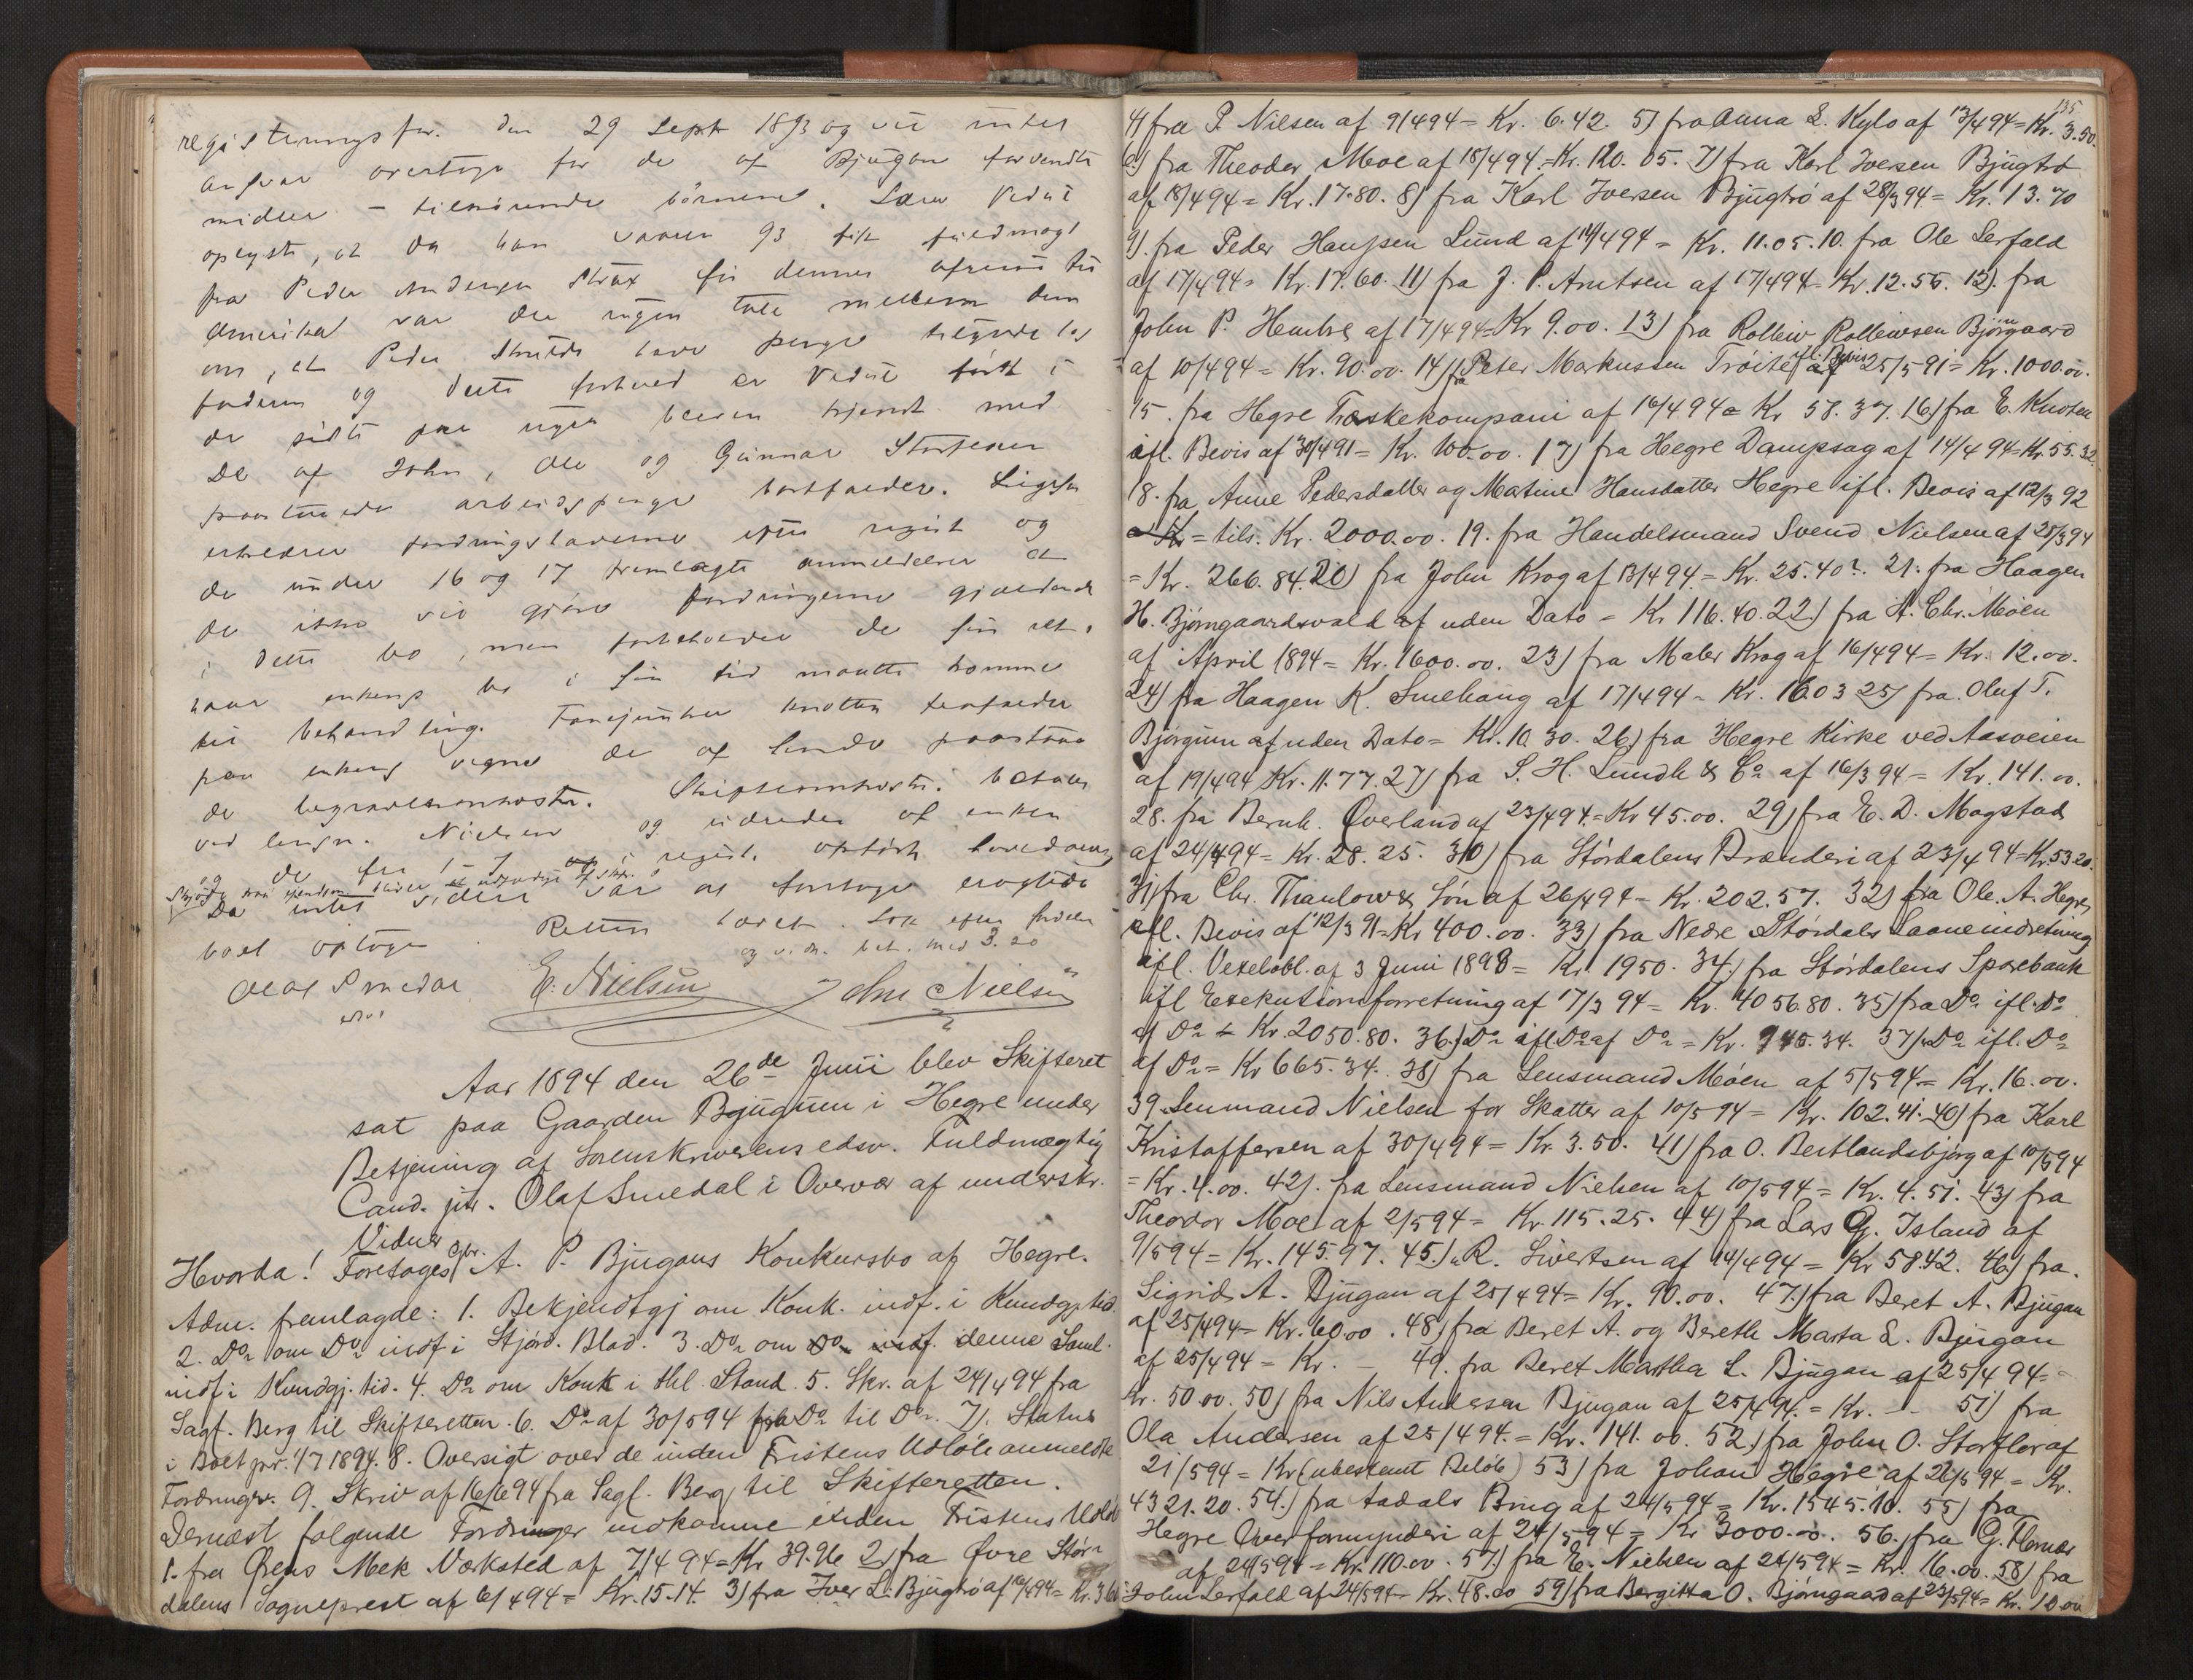 registreringsfor. den 29 Sept 1893 og vil intet
ansvar overtage for de af Bjugan forvendte
midler – tilhørende børnene. Lars Vedul
oplyste, at da han vaaren 93 fik fuldmagt
fra Peder Andersen Skrax før dennes afreise til
Amerika var der ingen tale mellem dem
om, at Peder skulde have penge tilgode hos
faderen og dette forhold er Vedul først i
de sidste par uger bleven kjendt med
De af John, Ole og Gunnar
paastaaede arbeidspenge bortfalder. Ligesaa
erklærer fordringshaverne efter regist og
de under 16 og 17 fremlagte anmeldelser at
de ikke vil gjøre fordringerne gjældende
i dette bo, men forbeholder de sin ret,
naar enkens bo i sin tid maatte komme
til behandling. Fanejunker Knotten
paa enkens vegne de af paastaaede
de begravelsesomkostn. Skifteomkostn. betales
ved lensm. Nielsen og udredes af enken
og de fra 1–7 i regist. opførte
Da intet videre var at foretage
boet optages. Retten hævet. Sat efter
og v. m. bet. med 3.20
Olaf Smedal
E. Nielsen John Nielsen
Aar 1894 den 26de Juni blev Skifteret
sat paa Gaarden Bjuguen i Hegre under
Betjening af Sorenskriverens edsv. Fuldmægtig
Cand. jur. Olaf Smedal i Overvær af underskr.
Vidner
Hvorda! Foretoges Gbr. A. P. Bjugans Konkursbo af Hegre.
Adm. fremlagde: 1. Bekjendtgj om Konk. indf. i Kundgj.tid
2. Do om Do indf i Stjørd. Blad. 3. Do om Do indf. denne Saml.
indf i Kundgj.tid. 4. Do om Konk i thl. Stand. 5. Skr. af 24/4 94 fra
Sagf. Berg til Skifteretten. 6. Do af 30/5 94 fra Do til Do. 7). Status
i Boet pr. 1/7 1894. 8. Oversigt over de inden Fristens Udløb anmeldte
Fordringer. 9. Skriv af 16/6 94 fra Sagf. Berg til Skifteretten.
Dernæst følgende Fordringer indkomne inden Fristens Udløb
1. fra Ørens Mek Væksted af 7/4 94 = Kr 39.96 2) fra Øvre Stør-
dalens Sogneprest af 6/4 94 = Kr. 15.14. 3) fra Iver L. Bjugtrø af 16/4 94 = Kr. 3.60
135
4) fra P. Nilsen af 9/4 94 = Kr. 6.42. 5) fra Anna L. Kylo af 13/4 94 = Kr. 3.50.
6) fra Theodor Moe af 18/4 94. = Kr. 120.05. 7) fra Karl Iversen Bjugtrø
af 18/4 94 = Kr. 17.80. 8) fra Karl Iversen Bjugtrø af 28/3 94 = Kr. 13.70
9). fra Peder Hanssen Lund af 14/4 94 = Kr. 11.05. 10. fra Ole Lerfald
af 17/4 94 = Kr. 17.60. 11) fra J. P. Arntsen af 17/4 94 = Kr. 12.55. 12). fra
John P. Hembre af 17/4 94 = Kr 9.00. 13) fra Rolleiv Rolleivsen Bjørngaard
af 10/4 94 = Kr. 90.00. 14) fra Peter Markussen Trøite ifl. Bevis af 25/5 91 = Kr. 1000.00.
15. fra Hegre Træskekompani af 16/4 94 = Kr 58.37. 16) fra E. Knoten
ifl. Bevis af 30/4 91 = Kr. 100.00. 17) fra Hegre Dampsag af 14/4 94 = Kr. 55.32.
18. fra Anne Pedersdatter og Matine Hansdatter Hegre ifl. Bevis af 12/3 92
= Kr = tils. Kr. 2000.00. 19. fra Handelsmand Svend Nielsen af 28/3 94
= Kr. 266.84. 20) fra John Krog af 13/4 94 = Kr. 25.40?. 21. fra Haagen
H. Bjørngaardsvald af uden Dato = Kr 116.40. 22.) fra A. Chr. Moen
af April 1894 = Kr. 1600.00. 23) fra Maler Krog af 16/4 94 = Kr. 12.00.
24) fra Haagen K. Smelhaug af 17/4 94 = Kr. 16.03 25) fra Oluf T.
Bjørgum af uden Dato = Kr. 10.30. 26) fra Hegre Kirke ved Aasveien
af 19/4 94 Kr. 11.77. 27) fra S. H. Lundh & Co af 16/3 94 = Kr. 141.00.
28. fra Bernh. Øverland af 23/4 94. = Kr 45.00. 29) fra E. D. Magstad
af 24/4 94 = Kr. 28.25. 30) fra Størdalens Brænderi af 23/4 94 = Kr. 53 20.
31) fra Chr. Thaulow & Søn af 26/4 94 = Kr. 202.57. 32) fra Ole A. Hegre
ifl. Bevis af 12/3 91 = Kr 400.00. 33) fra Nedre Størdalens Laaneindretning
ifl. Vexelobl. af 3 Juni 1898 = Kr. 1950. 34.) fra Størdalens Sparebank
ifl Exekutionsforretning af 17/3 94 = Kr. 4056.80. 35) fra Do ifl. Do
af Do = Kr. 2050.80. 36.) Do ifl Do af Do = Kr. 945.34. 37) Do ifl. Do
af Do = Kr 665.34. 38) fra Lensmand Moen af 5/5 94 = Kr. 16.00.
39. Lensmand Nielsen for Skatter af 10/5 94 = Kr. 102.41. 40) fra Karl
Kristoffersen af 30/4 94 = Kr. 3.50. 41) fra O. Bertlandsbjørg af 10/5 94
= Kr. 4.00. 42). fra Lensmand Nielsen af 10/5 94 = Kr. 4.51. 43) fra
Theodor Moe af 2/5 94 = Kr. 115.25. 44) fra Lars G. Island af
9/5 94 = Kr. 145.97. 45.) R. Sivertsen af 14/4 94 = Kr 58.42. 46) fra.
Sigrid A. Bjugan af 25/4 94 = Kr. 90.00. 47.) fra Beret A. Bjugan
af 25/4 94 = Kr. 60.00. 48) fra Beret A. og Bereth Marta L. Bjugan
af 25/4 94 = Kr. – 49. fra Beret Martha L. Bjugan af 25/4 94 =
Kr. 50.00. 50) fra Nils Andersen Bjugan af 25/4 94. = Kr. -- 51) fra
Ola Andersen af 25/4 94. = Kr. 141.00. 52.) fra John O. Storflor af
21/5 94 = Kr (ubestemt Beløb) 53) fra Johan Hegre af 21/5 94 = Kr.
4321.20. 54.) fra Aadals Brug af 24/5 94 = Kr. 1545.10. 55) fra
Hegre Overformynderi af 24/5 94 = Kr 3000.00. 56.) fra G.
af 24/5 94 = Kr. 110.00. 57.) fra E. Nielsen af 24/5 94 = Kr. 16.00. 58) fra
John Lerfald af 24/5 94 = Kr. 48.00 59) fra Bergitta O. Bjørngaard af 23/5 94 = Kr. 10.00